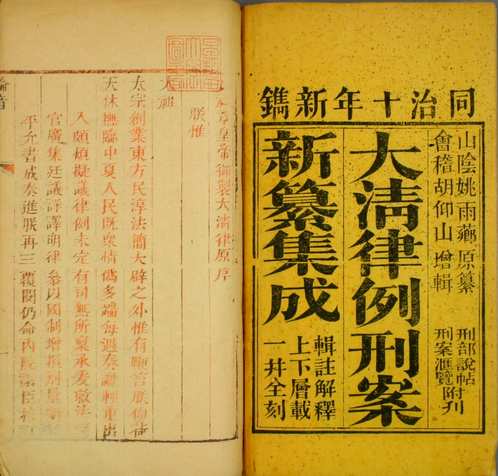 同治十年新鐫
山陰姚雨薌原纂
會稽胡仰山增輯
大清律例刑案
新纂集成
刑部說帖
刑案滙覽
附刊
輯註解釋
上下層載
一并全刻
皇帝御製大清律原序
朕惟
太宗創業東方民淳法簡大辟之外惟有鞭笞朕仰荷
天休撫臨中夏人民既衆情僞多端每遇奏讞輕重出
入頗煩擬議律例未定有司無所稟承爰敕法司
官廣集廷議詳譯明律參以國制增損劑量期
平允書成奏進朕再三覆閱仍命内院